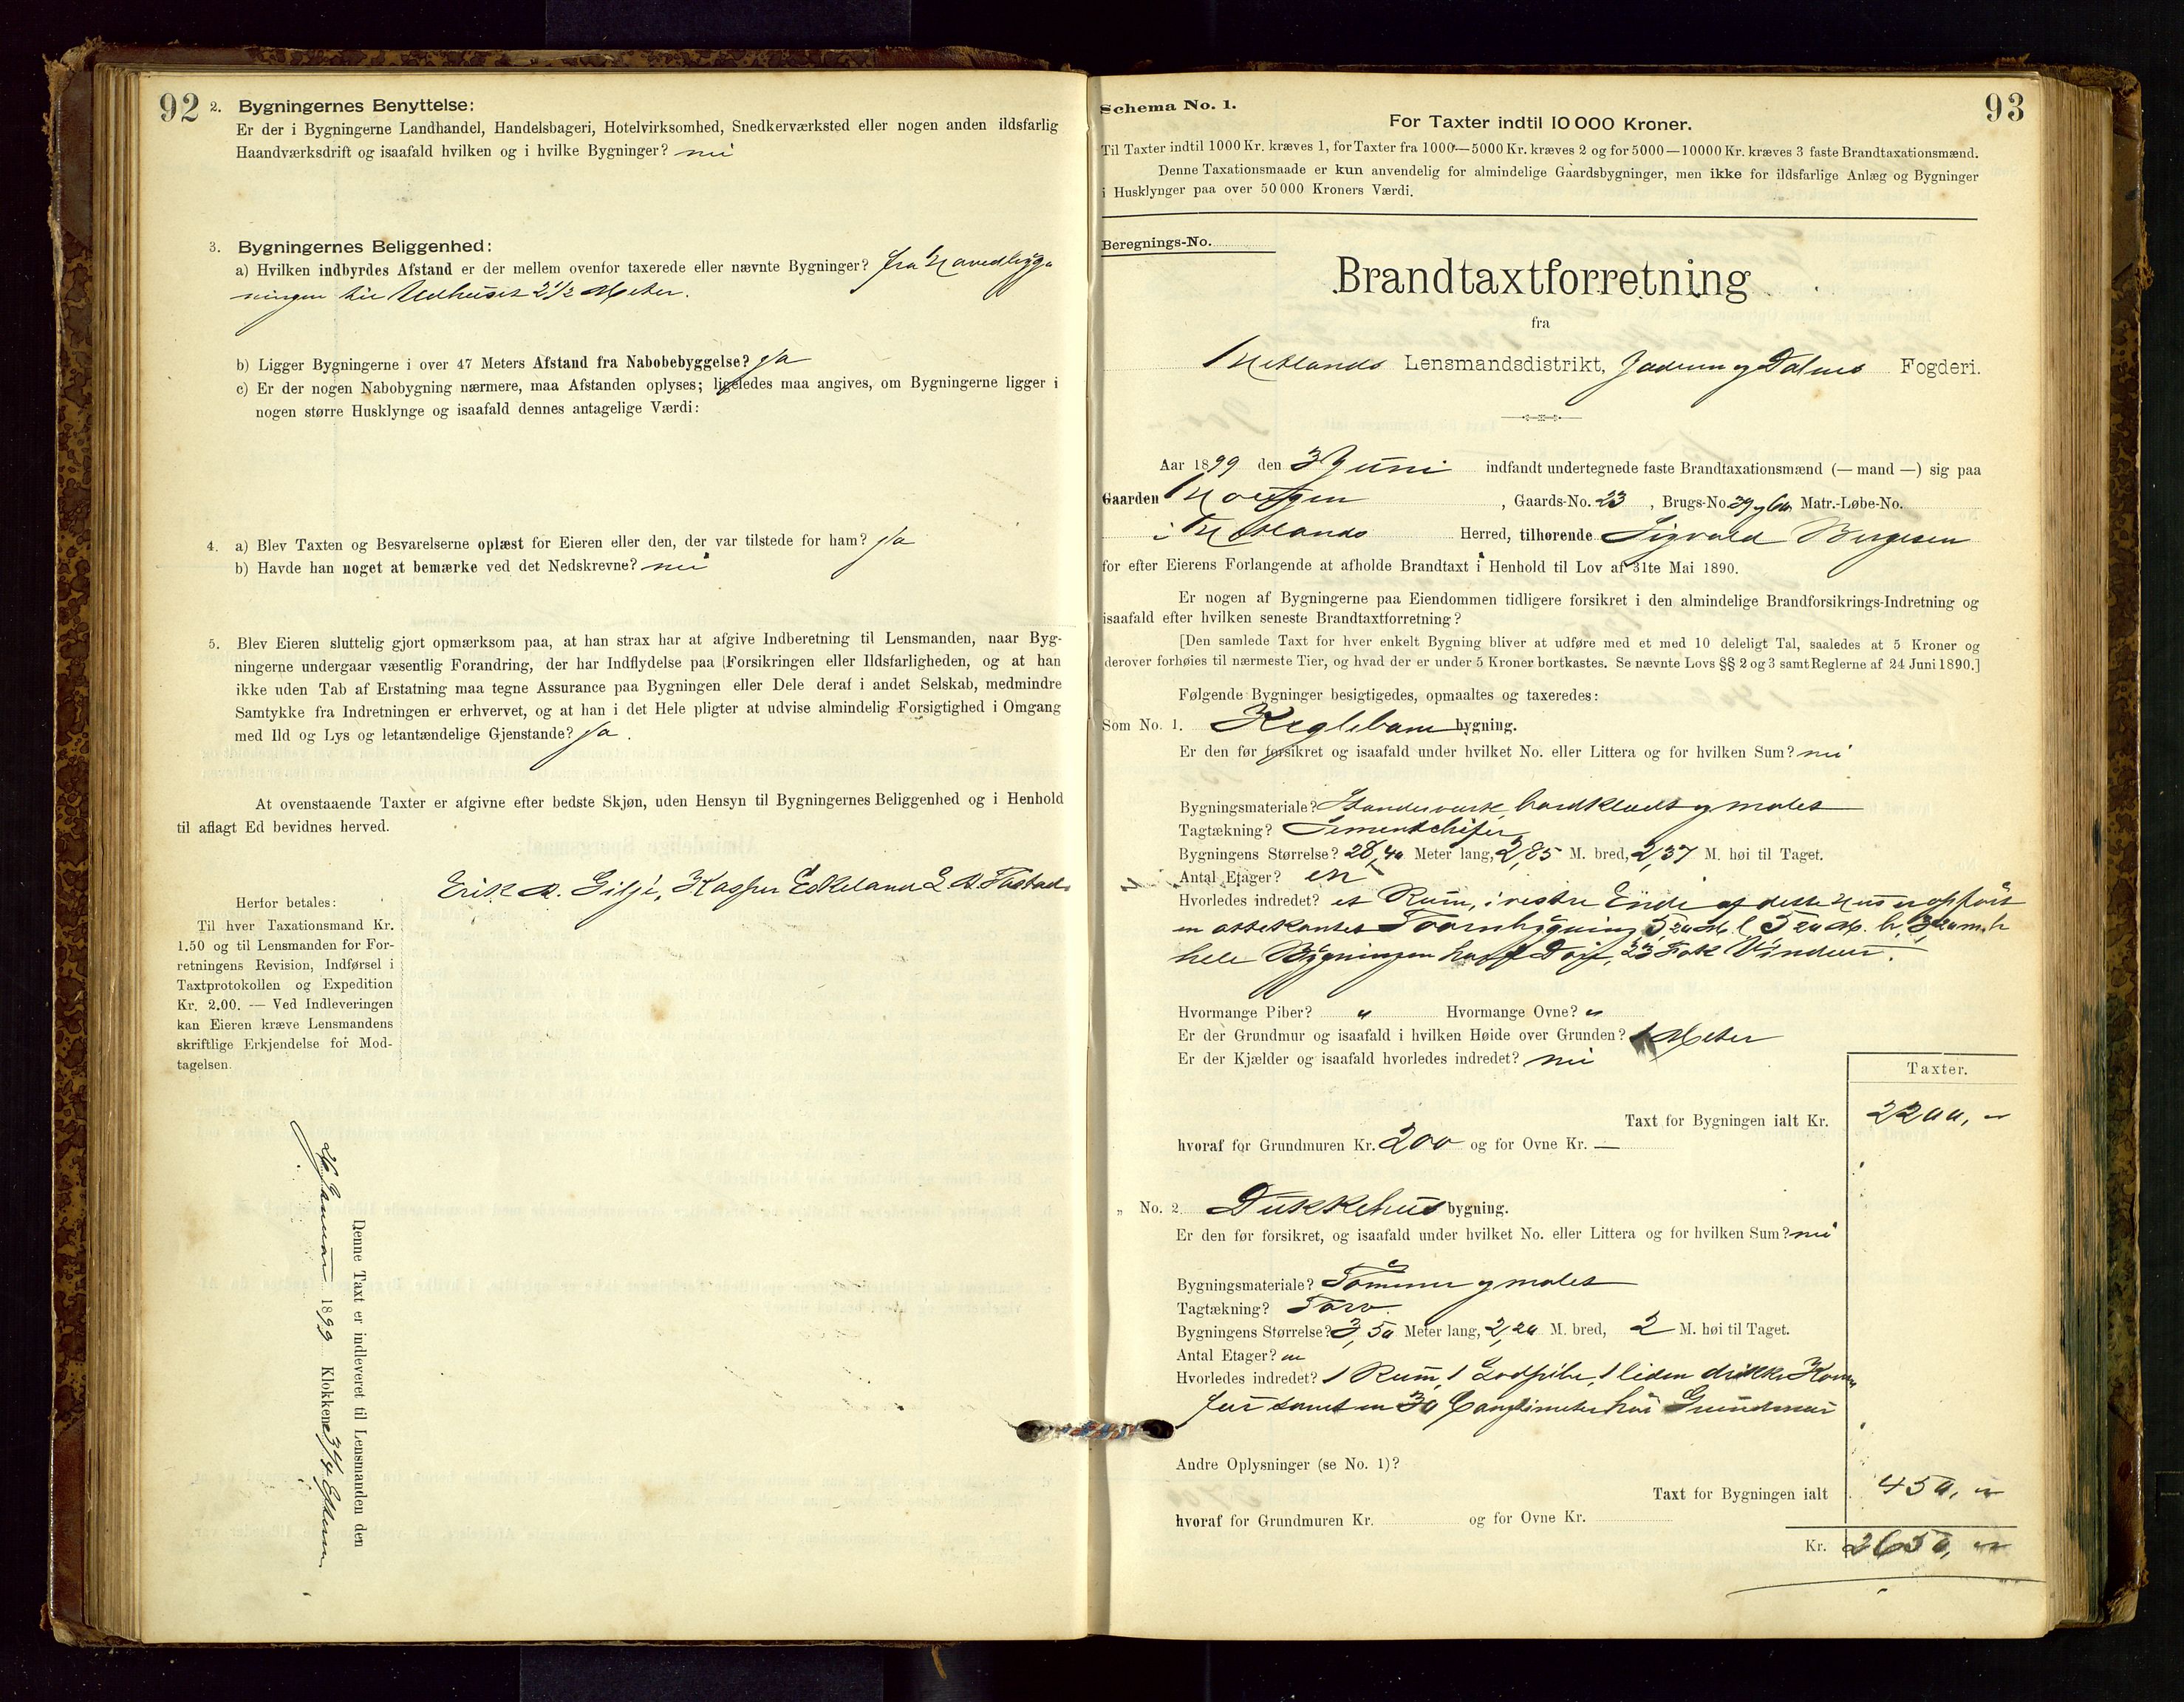 92
2. Bygningernes Benyttelse:
Er der i Bygningerne Landhandel, Handelsbageri, Hotelvirksomhed, Snedkerværksted eller nogen anden ildsfarlig
Haandværksdrift og isaafald hvilken og i hvilke Bygninger? nei
3. Bygningernes Beliggenhed:
a) Hvilken indbyrdes Afstand er der mellem ovenfor taxerede eller nævnte Bygninger? fra Hovedbyg-
ningen til Udhuset 2 1/2 Meter.
b) Ligger Bygningerne i over 47 Meters Afstand fra Nabobebyggelse? Ja
c) Er der nogen Nabobygning nærmere, maa Afstanden oplyses; ligeledes maa angives, om Bygningerne ligger i
nogen større Husklynge og isaafald dennes antagelige Værdi:
4. a) Blev Taxten og Besvarelserne oplæst for Eieren eller den, der var tilstede for ham? Ja
b) Havde han noget at bemærke ved det Nedskrevne? nei
5. Blev Eieren sluttelig gjort opmærksom paa, at han strax har at afgive Indberetning til Lensmanden, naar Byg-
ningerne undergaar væsentlig Forandring, der har Indflydelse paa Forsikringen eller Ildsfarligheden, og at han
ikke uden Tab af Erstatning maa tegne Assurance paa Bygningen eller Dele deraf i andet Selskab, medmindre
Samtykke fra Indretningen er erhvervet, og at han i det Hele pligter at udvise almindelig Forsigtighed i Omgang
med Ild og Lys og letantændelige Gjenstande? Ja.
At ovenstaaende Taxter er afgivne efter bedste Skjøn, uden Hensyn til Bygningernes Beliggenhed og i Henhold
til aflagt Ed bevidnes herved.
Erik A. Gilje, Kasper Eskeland
Herfor betales:
Til hver Taxationsmand Kr.
1.50 og til Lensmanden for For-
retningens Revision, Indførsel i
Taxtprotokollen og Expedition
Kr. 2.00. — Ved Indleveringen
kan Eieren kræve Lensmandens
skriftlige Erkjendelse for Mod-
tagelsen.
Denne Taxt er indleveret til Lensmanden den
Januar 1899 Klokken 3 1/4 Efterm.
93
Schema No. 1.
For Taxter indtil 10 000 Kroner.
Til Taxter indtil 1000 Kr. kræves 1, for Taxter fra 1000—5000 Kr. kræves 2 og for 5000—10000 Kr. kræves 3 faste Brandtaxationsmænd.
Denne Taxationsmaade er kun anvendelig for almindelige Gaardsbygninger, men ikke for ildsfarlige Anlæg og Bygninger
i Husklynger paa over 50 000 Kroners Værdi.
Beregnings-No.
Brandtaxtforretning
fra
Hetlands Lensmandsdistrikt, Jæderen og Dalenes Fogderi.
Aar 1899 den 3 Juni indfandt undertegnede faste Brandtaxationsmænd (— mand —) sig paa
Gaarden , Gaards-No. 23 , Brugs-No. 39 og 60 Matr.-Løbe-No.
i Hetlands Herred, tilhørende Sigvald Bergesen
for efter Eierens Forlangende at afholde Brandtaxt i Henhold til Lov af 31te Mai 1890.
Er nogen af Bygningerne paa Eiendommen tidligere forsikret i den almindelige Brandforsikrings-Indretning og
isaafald efter hvilken seneste Brandtaxtforretning?
[Den samlede Taxt for hver enkelt Bygning bliver at udføre med et med 10 deleligt Tal, saaledes at 5 Kroner og
derover forhøies til nærmeste Tier, og hvad der er under 5 Kroner bortkastes. Se nævnte Lovs §§ 2 og 3 samt Reglerne af 24 Juni 1890.]
Følgende Bygninger besigtigedes, opmaaltes og taxeredes:
Som No. 1. Keglebane bygning.
Er den før forsikret og isaafald under hvilket No. eller Littera og for hvilken Sum? nei
Bygningsmateriale? Standerverk, bordklædt og malet
Tagtækning? Sementskifer
Bygningens Størrelse? 28,40 Meter lang, 2,85 M. bred, 2,37 M. høi til Taget.
Antal Etager? en
Hvorledes indredet? et Rum, i vestre Ende af dette Hus er opført
en ottekantet Taarnbygning 5 20 M. l 5 20 M. b. 3 20 m. h
hele Bygningen har Døre, 23 Fak Vinduer.
Hvormange Piber? " Hvormange Ovne? "
Er der Grundmur og isaafald i hvilken Høide over Grunden? 1 Meter
Er der Kjælder og isaafald hvorledes indredet? nei
Taxter.
Taxt for Bygningen ialt Kr. 2200, "
hvoraf for Grundmuren Kr. 200 og for Ovne Kr. —
„ No. 2. Dukkehus bygning.
Er den før forsikret, og isaafald under hvilket No. eller Littera og for hvilken Sum? nei
Bygningsmateriale? Tømmer og malet
Tagtækning? Torv.
Bygningens Størrelse? 3,50 Meter lang, 2,20 M. bred, 2 M. høi til Taget.
Antal Etager? en
Hvorledes indredet? 1 Rum, 1 Lodpibe, 1 liden dukke Kom-
fur samt en 30 høi Grundmur
Andre Oplysninger (se No. 1)?
Taxt for Bygningen ialt 450, "
hvoraf for Grundmuren Kr. og for Ovne Kr.
Kr. 2650, "